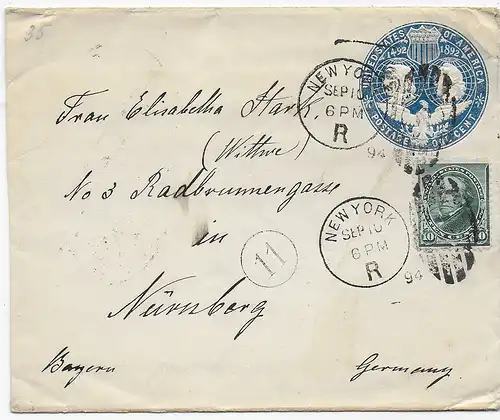 35
UNITED STATES OF AMERICA
1492 1892
POSTAGE ONE CENT
NEW YORK
SEP 10
6 PM
R
94
Frau Elisabetha Stark.
(Wittwe)
No 3 Radbrunnengasse
in
Nürnberg
Bayern
Germany.
11
NEW YORK
SEP 10
6 PM
R
94
10